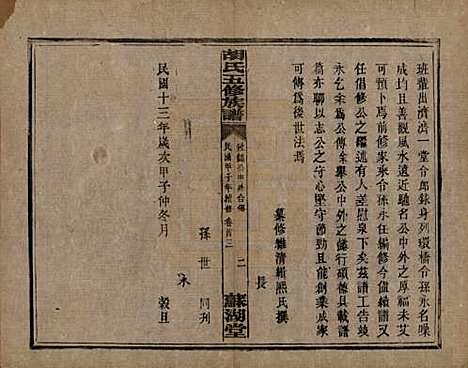 班輩出濟濟一堂合郎錄身列環橋合孫永名噪
成均且善觀風水遠近馳名公中外之厚福未艾
可預卜焉前修家乘令孫永任編修今值續譜
任倡修公之繼述有人差慰泉下矣茲譜工告竣
永乞余爲公傳余舉公中外之餘行碩德具載譜
篇亦聊以志公之守心堅守節勁且能創業成家
可傳爲後世法焉
纂修雅清賴熙氏撰
長
胡氏五修族譜
民國甲子年續修 卷首三
二
蘇湖堂
民國十三年歲次甲子仲冬月
孫世 同刊
永 穀旦